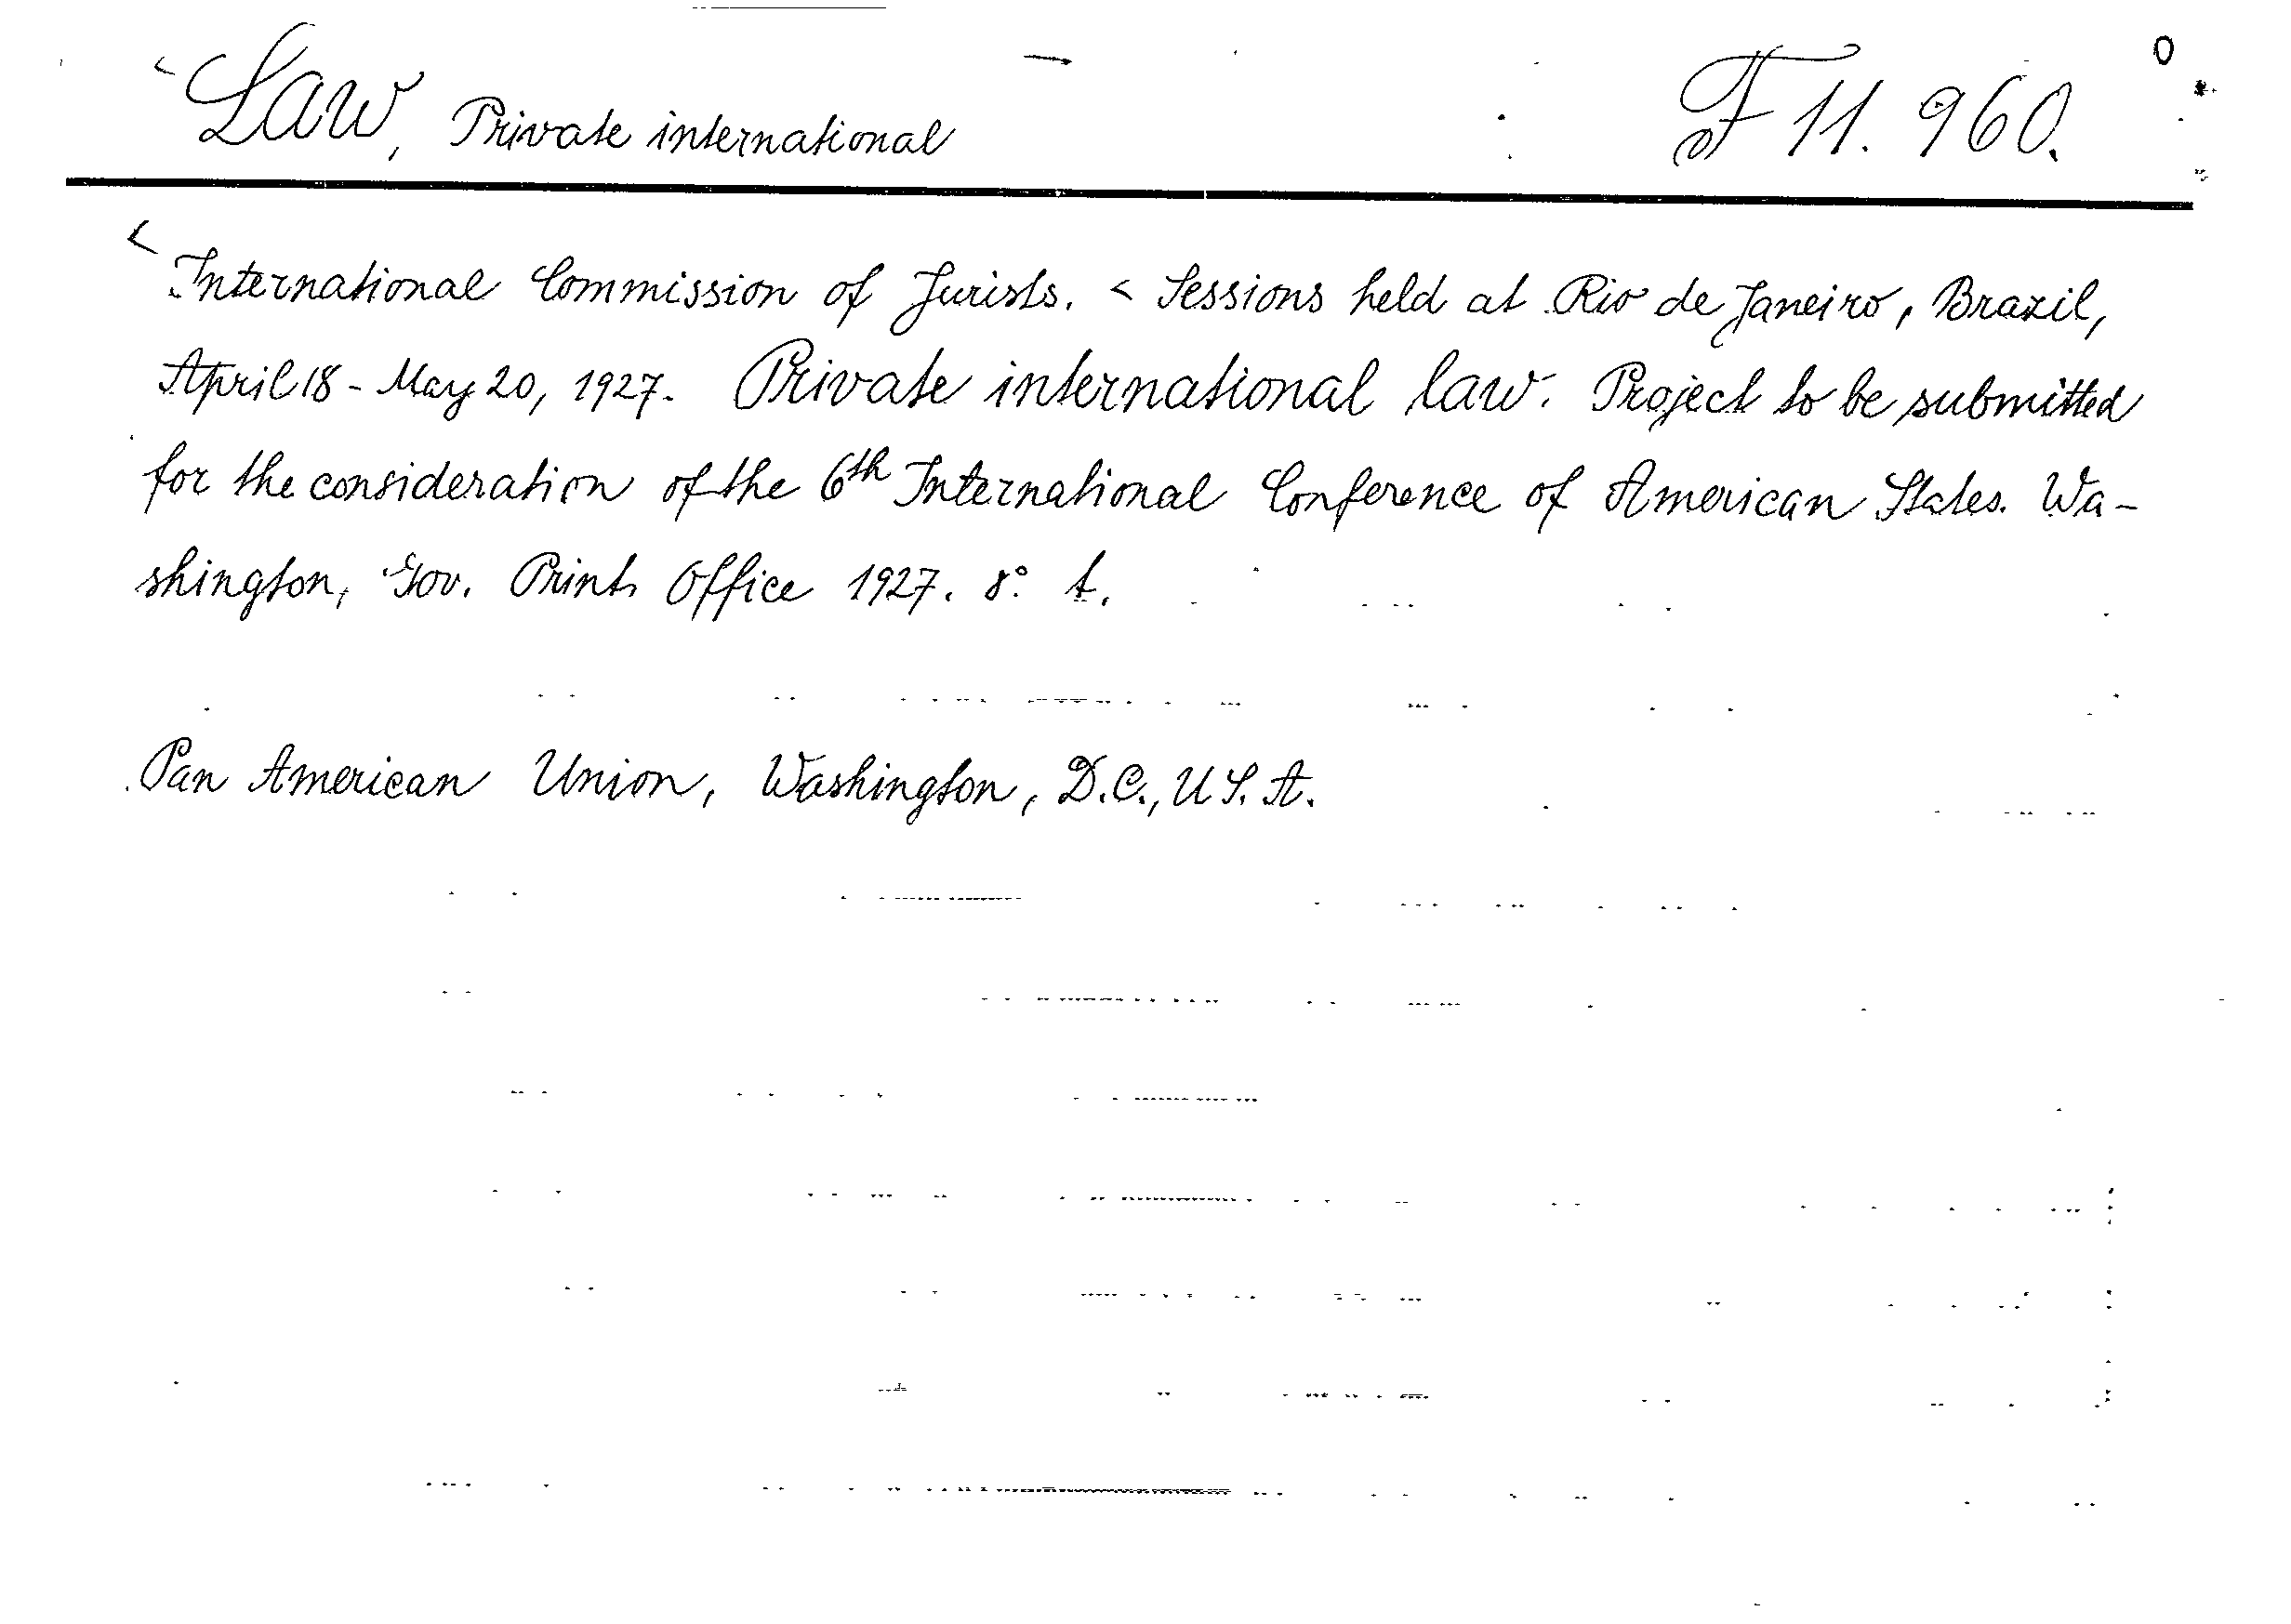 < Law, Private international F 11. 960.
< International Commission of Jurists. < Sessions held at Rio de Janeiro, Brazil,
April 18 - May 20, 1927. Private international law. Project to be submitted
for the consideration of the 6th International Conference of American States. Wa-
shington, Gov. Print. Office 1927. 8° t.
Pan American Union, Washington, D.C., U S. A.